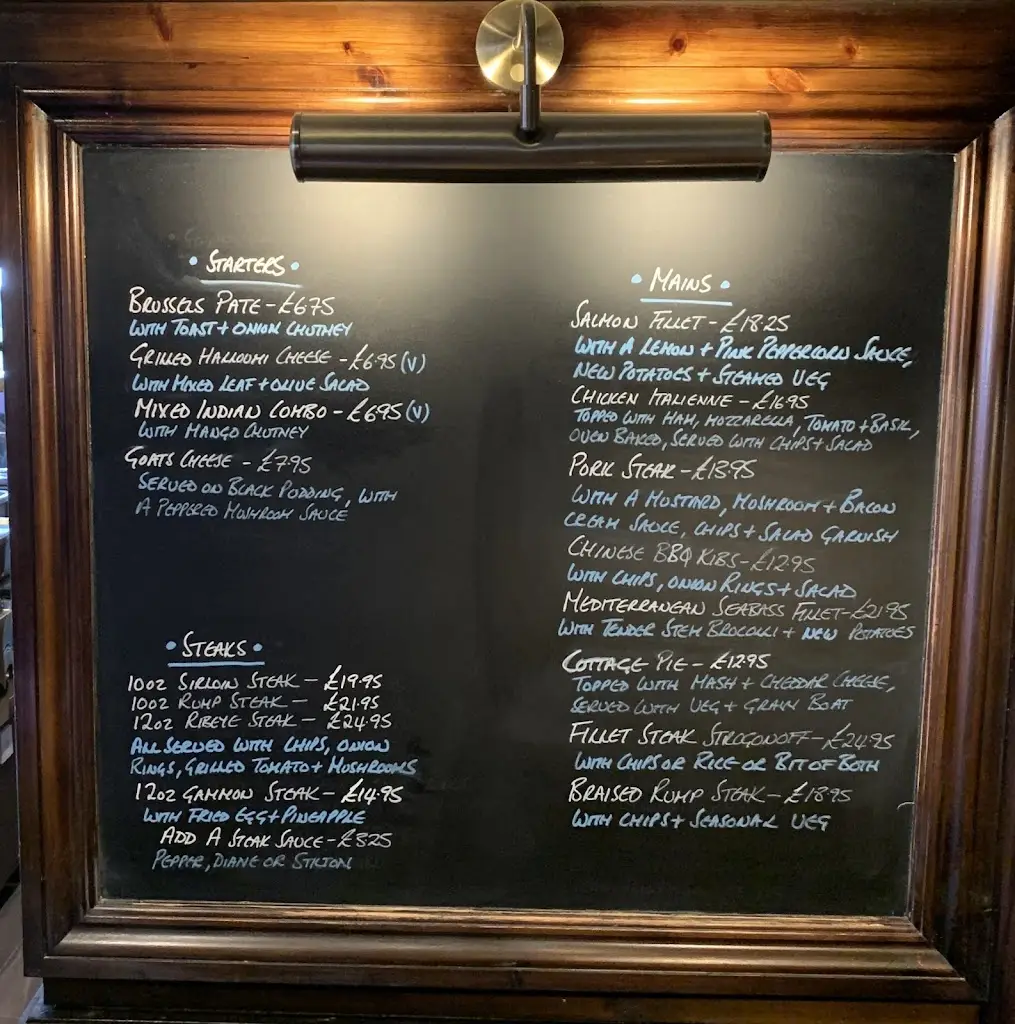 • STARTERS •
BRUSSELS PATE - £6.75
WITH TOAST + ONION CHUTNEY
GRILLED HALLOUMI CHEESE - £6.95 (V)
WITH MIXED LEAF + OLIVE SALAD
MIXED INDIAN COMBO - £6.95 (V)
WITH MANGO CHUTNEY
GOATS CHEESE - £7.95
SERVED ON BLACK PUDDING, WITH
A PEPPERED MUSHROOM SAUCE
• STEAKS •
10oz SIRLOIN STEAK - £19.95
10oz RUMP STEAK - £21.95
12oz RIBEYE STEAK - £24.95
ALL SERVED WITH CHIPS, ONION
RINGS, GRILLED TOMATO + MUSHROOMS
12oz GAMMON STEAK - £14.95
WITH FRIED EGG + PINEAPPLE
ADD A STEAK SAUCE - £3.25
PEPPER, DIANE OR STILTON
• MAINS •
SALMON FILLET - £18.25
WITH A LEMON + PINK PEPPERCORN SAUCE,
NEW POTATOES + STEAMED VEG
CHICKEN ITALIENNE - £16.95
TOPPED WITH HAM, MOZZARELLA, TOMATO + BASIL,
OVEN BAKED, SERVED WITH CHIPS + SALAD
PORK STEAK - £13.95
WITH A MUSTARD, MUSHROOM + BACON
CREAM SAUCE, CHIPS + SALAD GARNISH
CHINESE BBQ RIBS - £12.95
WITH CHIPS, ONION RINGS + SALAD
MEDITERRANEAN SEABASS FILLET - £21.95
WITH TENDER STEM BROCOLLI + NEW POTATOES
COTTAGE PIE - £12.95
TOPPED WITH MASH + CHEDDAR CHEESE,
SERVED WITH VEG + GRAVY BOAT
FILLET STEAK STROGONOFF - £24.95
WITH CHIPS OR RICE OR BIT OF BOTH
BRAISED RUMP STEAK - £18.95
WITH CHIPS + SEASONAL VEG